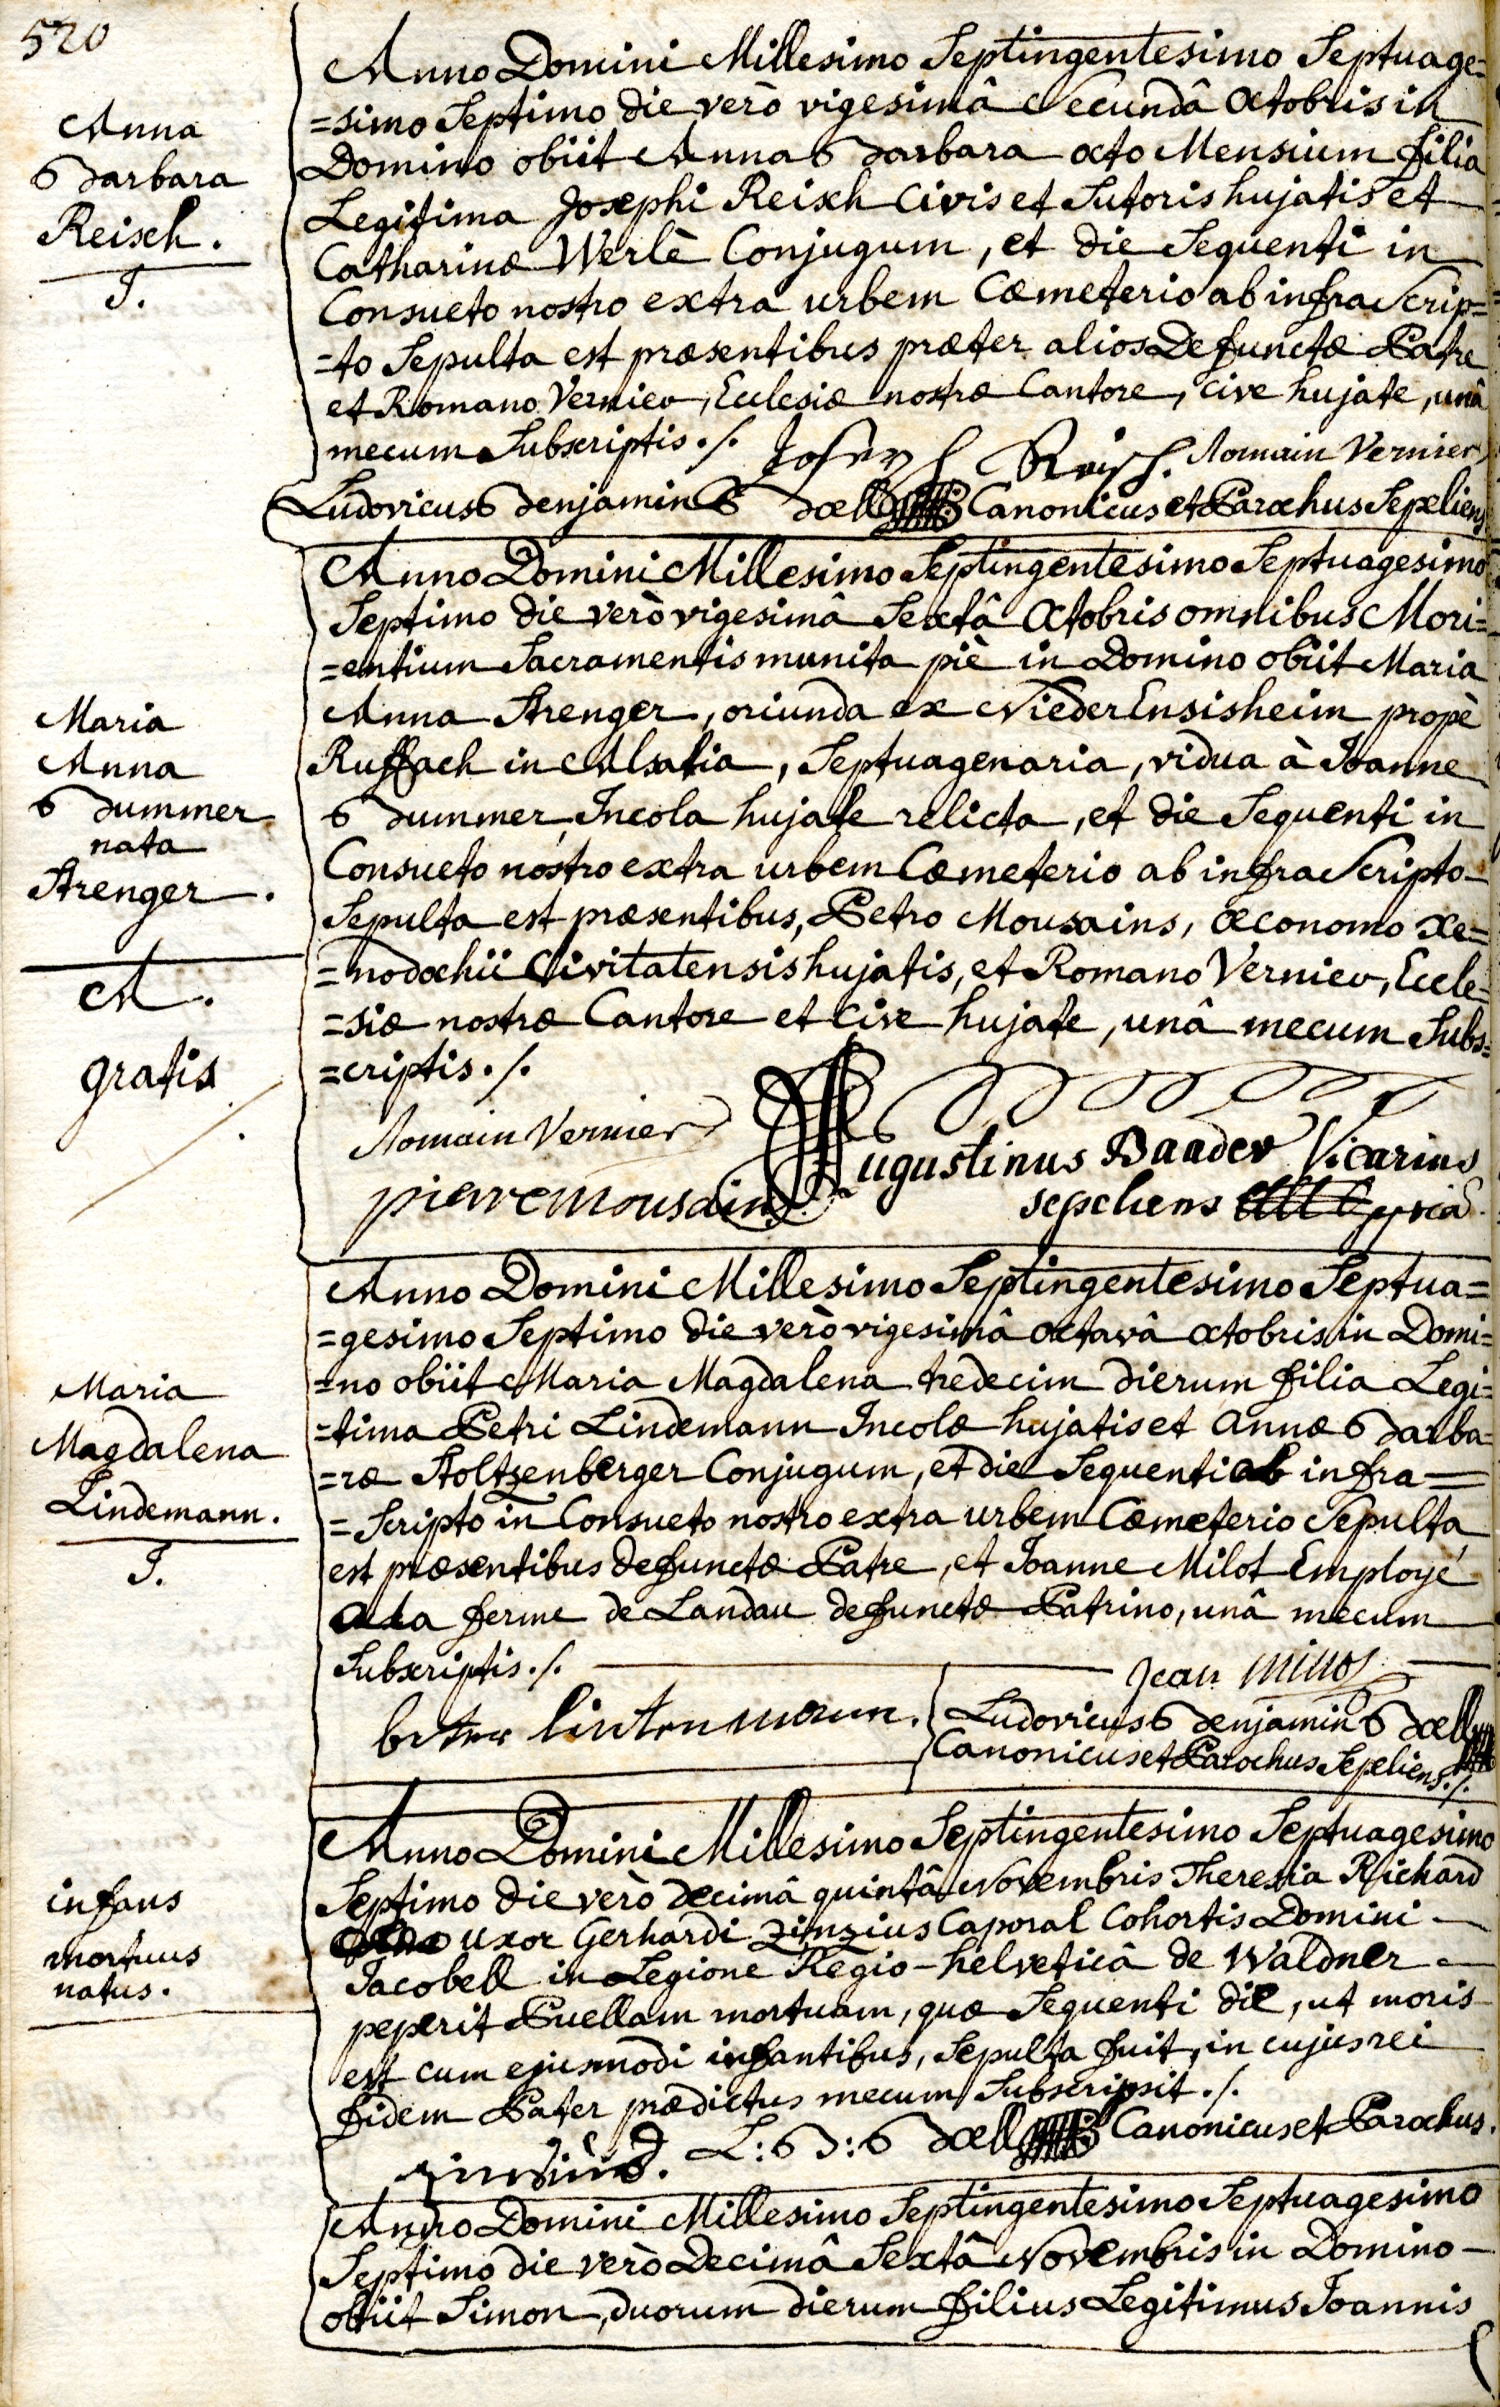 520
Anna
Barbara
Reisch.
I.
Anno Domini Millesimo Septingentesimo Septuage=
=simo Septimo die verò vigesimâ Secundâ Octobris in
Domino obiit Anna Barbara octo Mensium filia
Legitima Josephi Reisch Civis et Sutoris hujatis et
Catharinæ Werlè Conjugum, et die Sequenti in
Consueto nostro extra urbem Cœmeterio ab infra Scrip=
=to Sepulta est præsentibus præter alios Defunctæ Patre
et Romano Vernier, Ecclesiæ nostræ Cantore, cive hujate, unâ
mecum Subscriptis ./.
Joseph Reisch. Romain Vernier
Ludovicus Benjamin Boell Canonicus et Parochus Sepeliens
Maria
Anna
Bummer
nata
Strenger.
A.
gratis
Anno Domini Millesimo Septingentesimo Septuagesimo
Septimo die verò vigesimâ Sextâ Octobris omnibus Mori=
=entium Sacramentis munita piè in Domino obiit Maria
Anna Strenger, oriunda ex Nieder Ensisheim propè
Ruffach in Alsatia, Septuagenaria, vidua à Joanne
Bummer, Incola hujate relicta, et die Sequenti in
Consueto nostro extra urbem Cœmeterio ab infra Scripto
Sepulta est præsentibus, Petro Mousains, œconomo Xe=
=nodochii Civitatensis hujatis, et Romano Vernier, Eccle=
=siæ nostræ Cantore et Cive hujate, unâ mecum Subs=
=criptis ./.
Romain Vernier
Augustinus Baader Vicarius
pierre mousains
sepeliens
Maria
Magdalena
Lindemann.
I.
Anno Domini Millesimo Septingentesimo Septua=
=gesimo Septimo die verò vigesimâ octavâ octobris in Domi=
=no obiit Maria Magdalena tredecim dierum filia Legi=
=tima Petri Lindemann Incolæ hujatis et Annæ Barba=
=ræ Stoltzenberger Conjugum, et die Sequenti ab infra=
=Scripto in Consueto nostro extra urbem Cœmeterio Sepulta
est præsentibus defunctæ Patre, et Joanne Milot Employé
a La ferme de Landau defunctæ Patrino, unâ mecum
Subscriptis ./.
Jean
Ludovicus Benjamin Boell
Canonicus et Parochus Sepeliens ./.
infans
mortuus
natus.
Anno Domini Millesimo Septingentesimo Septuagesimo
Septimo die verò decimâ quintâ Novembris Theresia Richard
uxor Gerhardi Zinzius Caporal Cohortis Domini
Jacobell in Legione Regio-helveticâ de Waldner
peperit Puellam mortuam, quæ Sequenti die, ut moris
est cum ejusmodi infantibus, Sepulta fuit, in cujus rei
fidem Pater prædictus mecum Subscripsit ./.
L: B: Boell Canonicus et Parochus.
Anno Domini Millesimo Septingentesimo Septuagesimo
Septimo die verò Decimâ Sextâ Novembris in Domino
obiit Simon, duorum dierum filius Legitimus Joannis